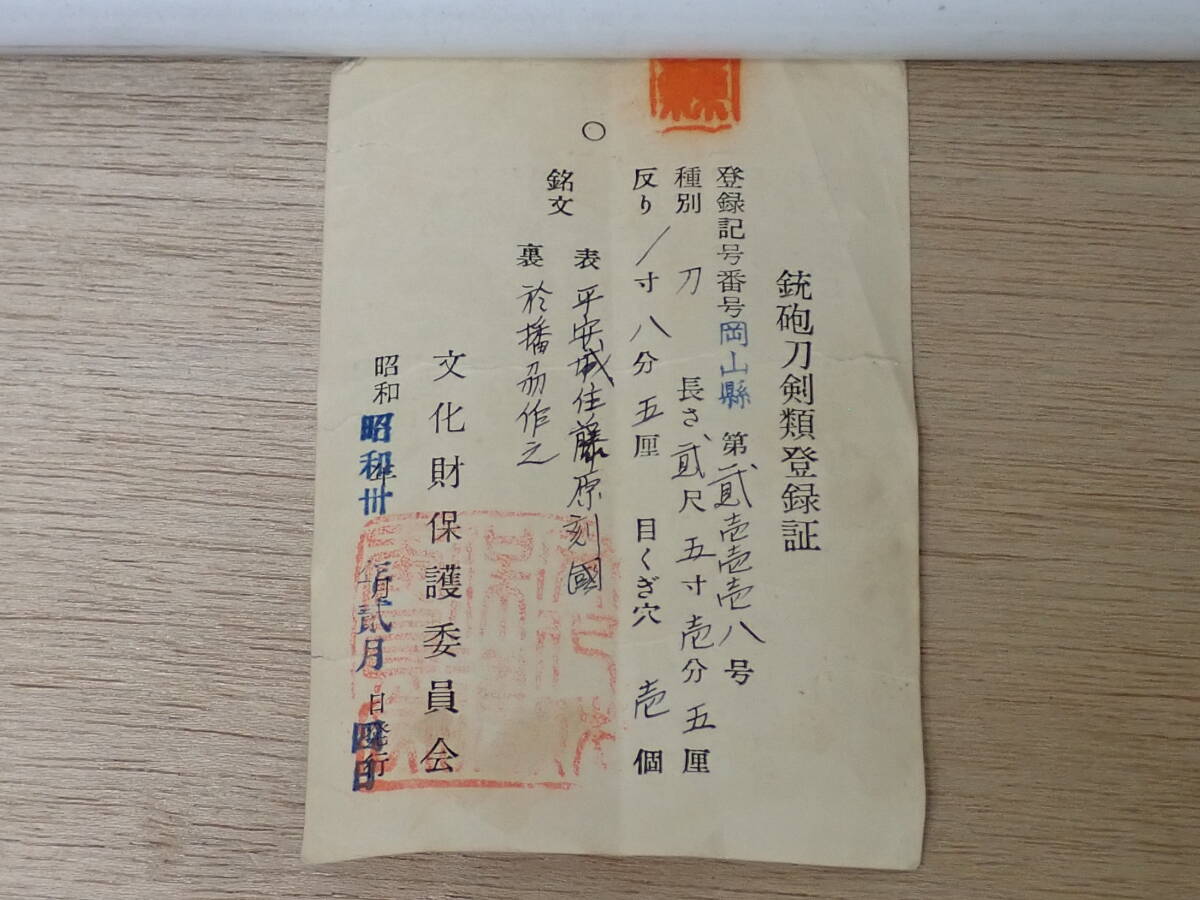 銃砲刀剣類登録証
登録記号番号 岡山縣 第貳壱壱壱八号
種別 刀 長さ 貳尺五寸壱分五厘
反り 1寸八分五厘 目くぎ穴 壱個
銘文
表 平安城住藤原刻國
裏 於播刕作之
文化財保護委員会
昭和 昭和卅 年 貳月 日発行 四日